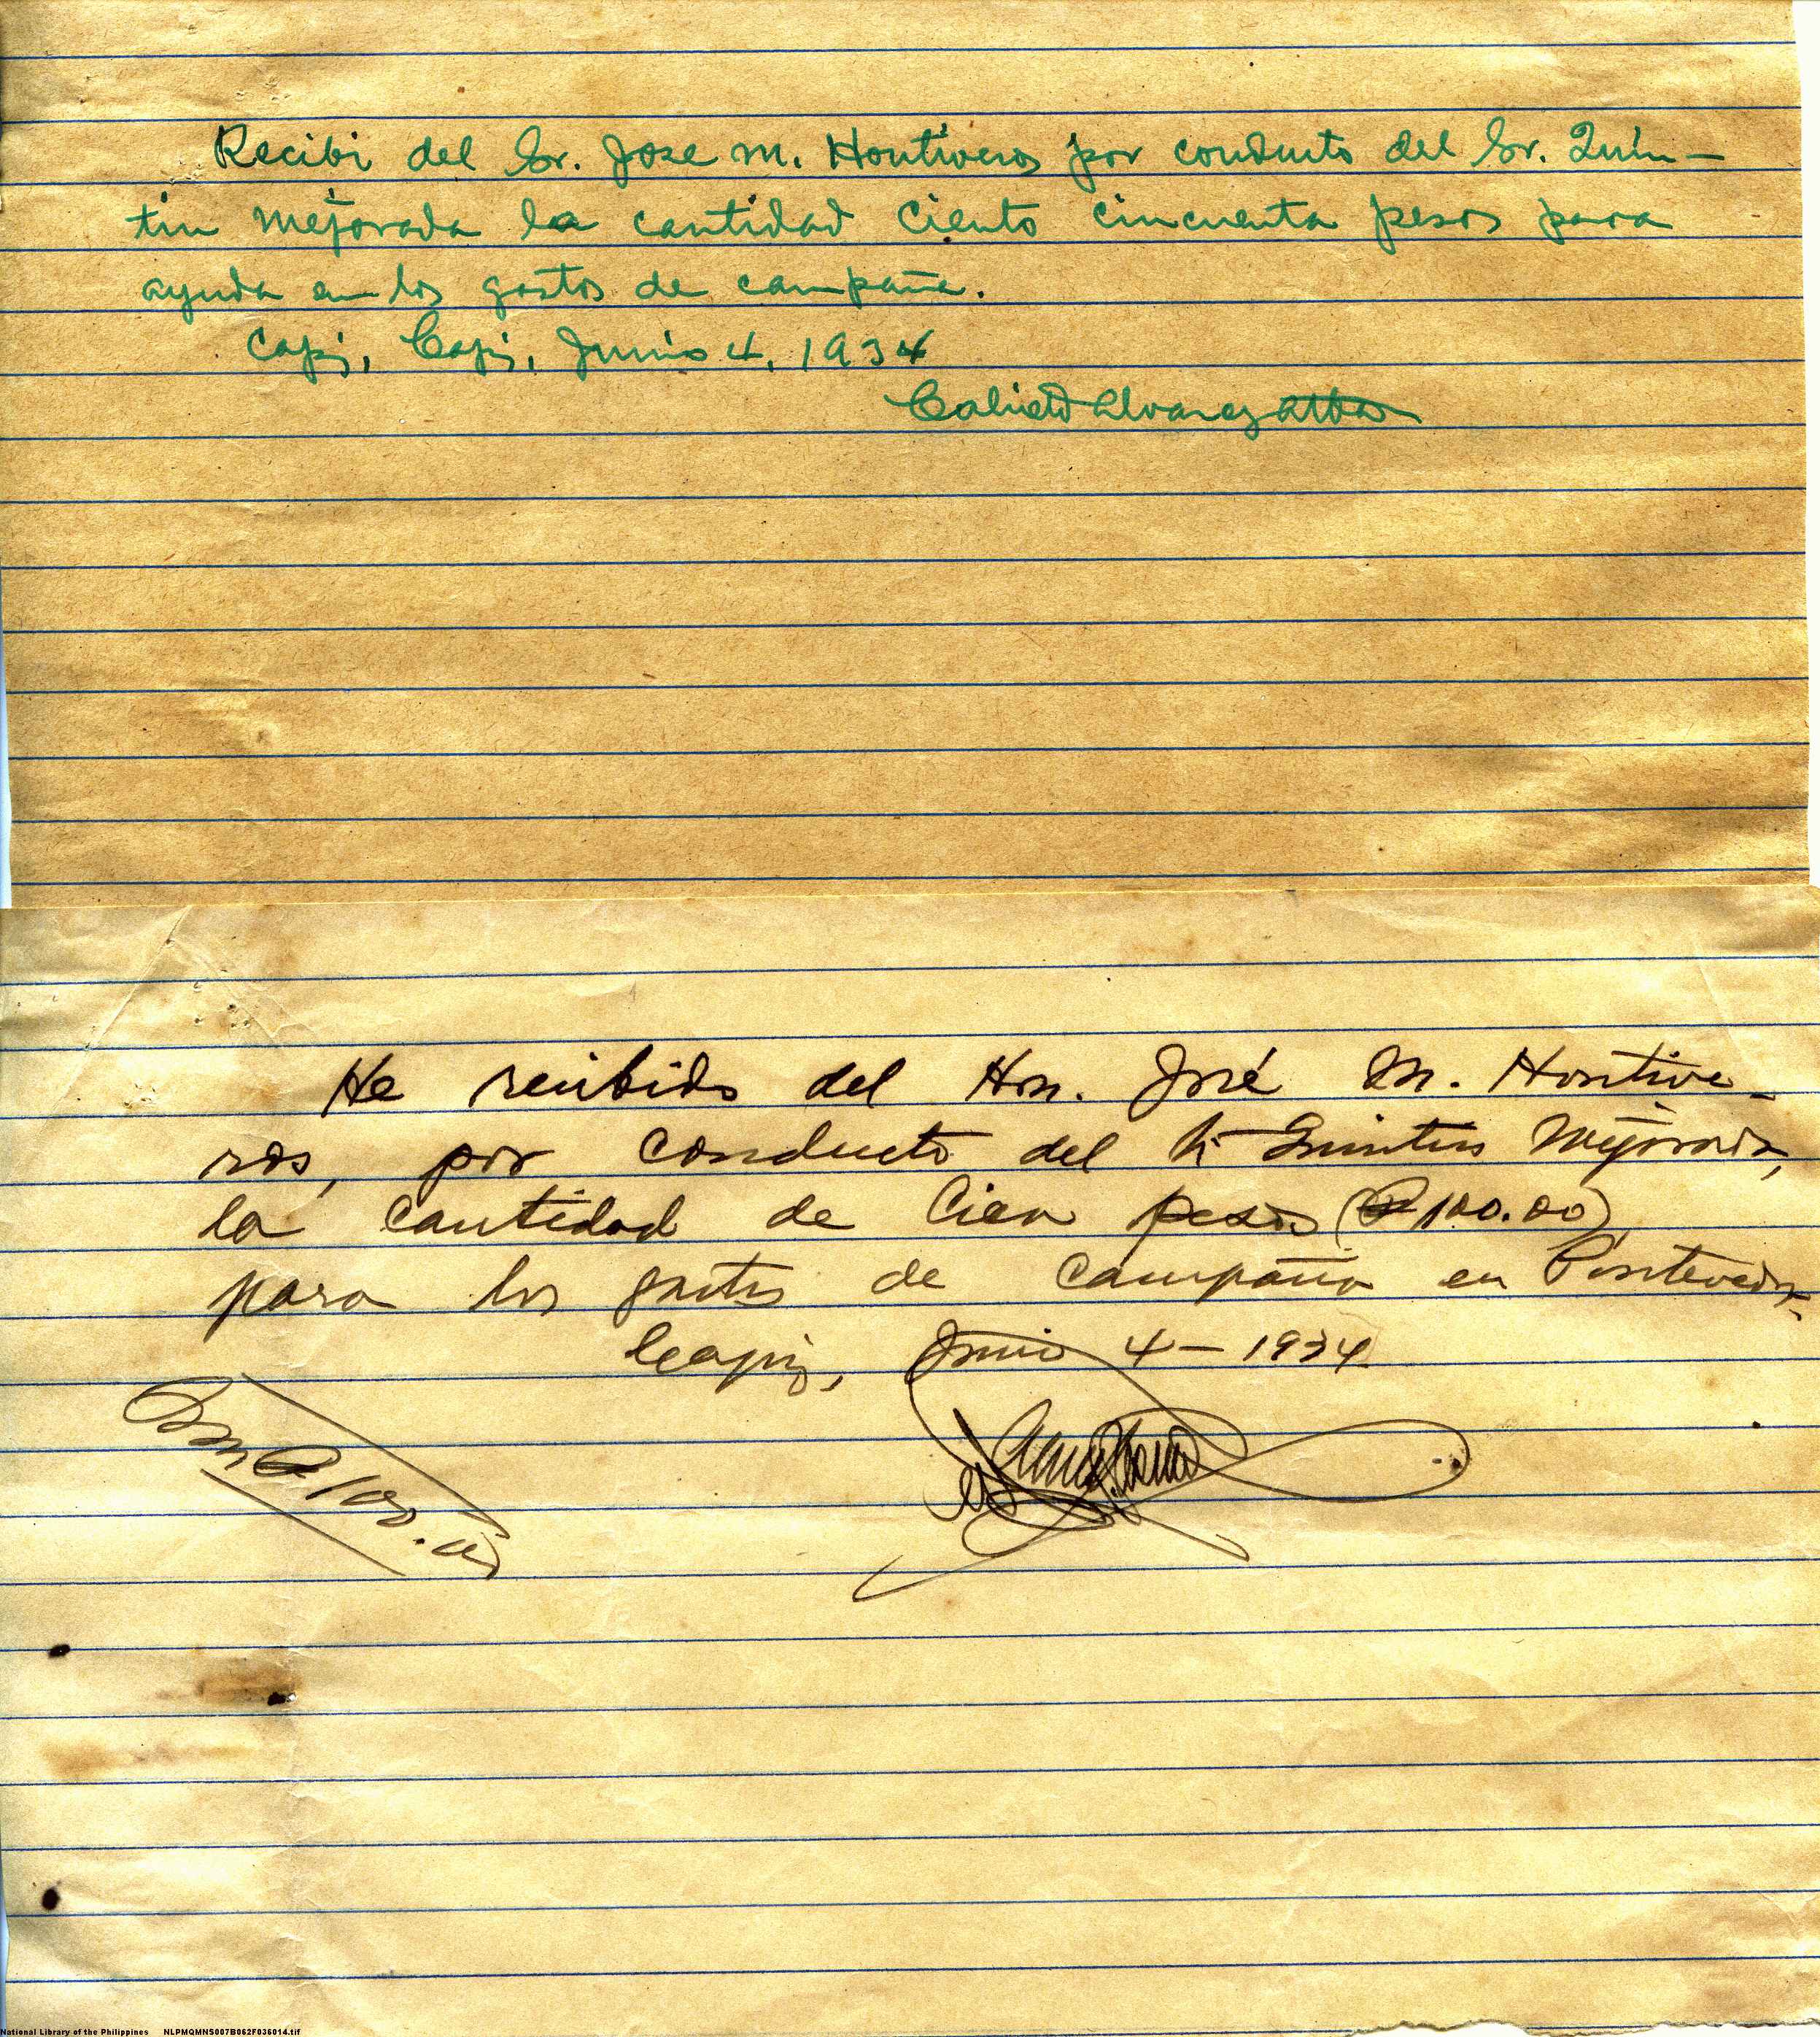 Recibi del Sr. Jose M. Hontiveros por conducto del Sr. Quin-
tin Mejorada la cantidad Ciento cincuenta pesos para
ayuda en los gastos de campaña.
Capiz, Capiz, Junio 4, 1934
Calixto Alvarez Alba
He recibido del Hon. José M. Hontive-
ros, por conducto del Sr Quintin Mejorada,
la cantidad de Cien pesos (₱100.00)
para los gastos de campaña en Pontevedra.
Capiz, Junio 4 - 1934
Son ₱100.00
National Library of the Philippines NLPMQMNS007B062F036014.tif